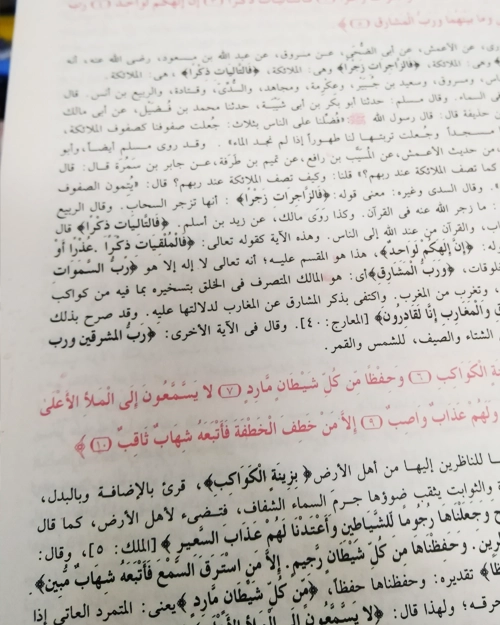 إن إلهكم لواحد (٤) رب
وما بينهما ورب المشارق (٥) ﴾
عن الأعمش، عن أبى الضحى، عن مسروق، عن عبد الله بن مسعود، رضى الله عنه، أنه
﴿فالزاجرات زجرا﴾ وهى: الملائكة، ﴿فالتاليات ذكرا﴾ ، هى: الملائكة.
، ومسروق، وسعيد بن جبير، وعكرمة، ومجاهد، والسدى، وقتادة، والربيع بن أنس. قال
فى السماء. وقال مسلم: حدثنا أبو بكر بن أبى شيبة، حدثنا محمد بن فضيل، عن أبى مالك
حذيفة قال: قال رسول الله ﷺ: «فضلنا على الناس بثلاث: جعلت صفوفنا كصفوف الملائكة،
مسجداً وجعلت تربتها لنا طهوراً إذا لم نجد الماء» . وقد روى مسلم أيضاً، وأبو
من حديث الأعمش، عن المسيب بن رافع، عن تميم بن طرفة، عن جابر بن سمرة قال: قال
كما تصف الملائكة عند ربهم؟» قلنا: وكيف تصف الملائكة عند ربهم؟ قال: «يتمون الصفوف
. وقال السدى وغيره: معنى قوله: ﴿فالزاجرات زجرا﴾ : أنها تزجر السحاب. وقال الربيع
: ما زجر الله عنه فى القرآن. وكذا روى مالك، عن زيد بن أسلم. ﴿فالتاليات ذكرا﴾ قال
، والقرآن من عند الله إلى الناس. وهذه الآية كقوله تعالى: ﴿فالملقيات ذكرا . عذرا أو
﴿إن إلهكم لواحد﴾، هذا هو المقسم عليه؛ أنه تعالى لا إله إلا هو ﴿رب السموات
، ﴿ورب المشارق﴾ أى: هو المالك المتصرف فى الخلق بتسخيره بما فيه من كواكب
، وتغرب من المغرب. واكتفى بذكر المشارق عن المغارب لدلالتها عليه. وقد صرح بذلك
والمغارب إنا لقادرون﴾ [المعارج: ٤٠]. وقال فى الآية الأخرى: ﴿رب المشرقين ورب
الشتاء والصيف، للشمس والقمر.
الكواكب (٦) وحفظا من كل شيطان مارد (٧) لا يسمعون إلى الملأ الأعلى
ولهم عذاب واصب (٩) إلا من خطف الخطفة فأتبعه شهاب ثاقب (١٠) ﴾
للناظرين إليها من أهل الأرض ﴿ بزينة الكواكب﴾، قرئ بالإضافة وبالبدل،
والثوابت يثقب ضوؤها جرم السماء الشفاف، فتضىء لأهل الأرض، كما قال
وجعلناها رجوما للشياطين وأعتدنا لهم عذاب السعير ﴾ [الملك: ٥]، وقال:
. وحفظناها من كل شيطان رجيم. إلا من استرق السمع فأتبعه شهاب مبين﴾
تقديره: وحفظناها حفظاً، ﴿من كل شيطان مارد ﴾ يعنى: المتمرد العاتى إذا
؛ ولهذا قال: ﴿لا يسمعون إلى